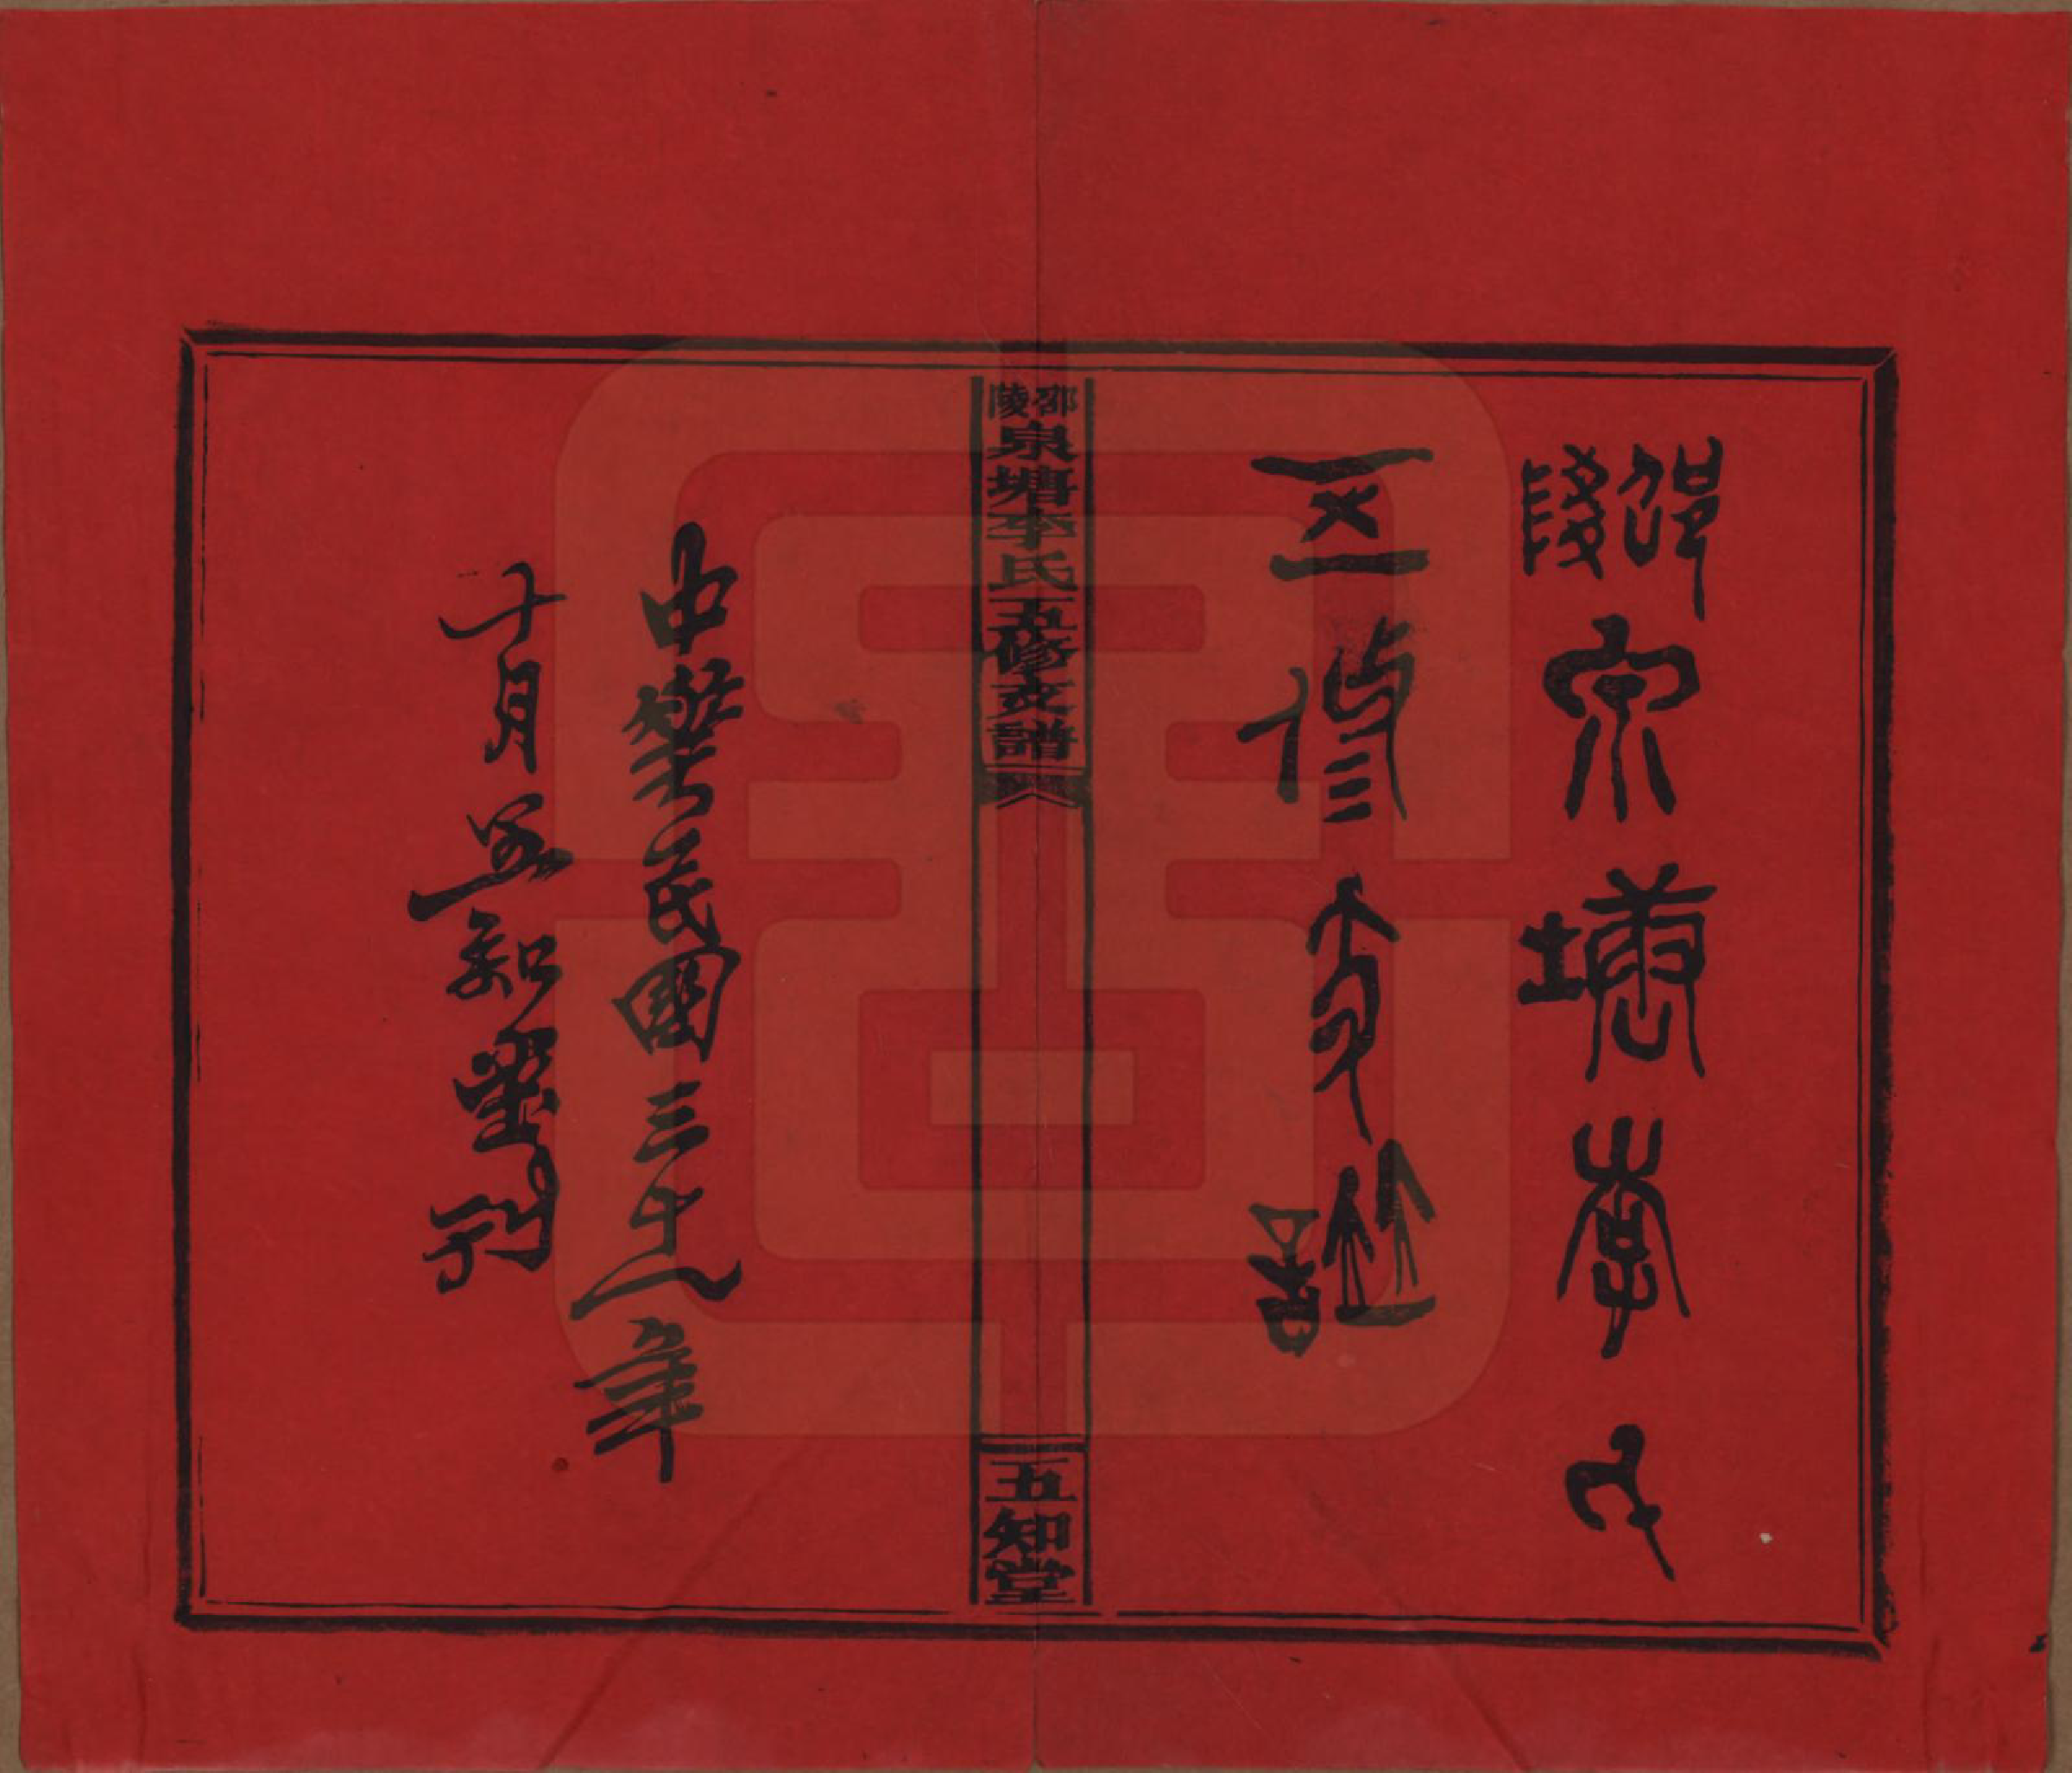 邵陵泉塘李氏
五修支譜
邵陵泉塘李氏五修支譜
五知堂
中華民國三十八年
十月五知堂刊